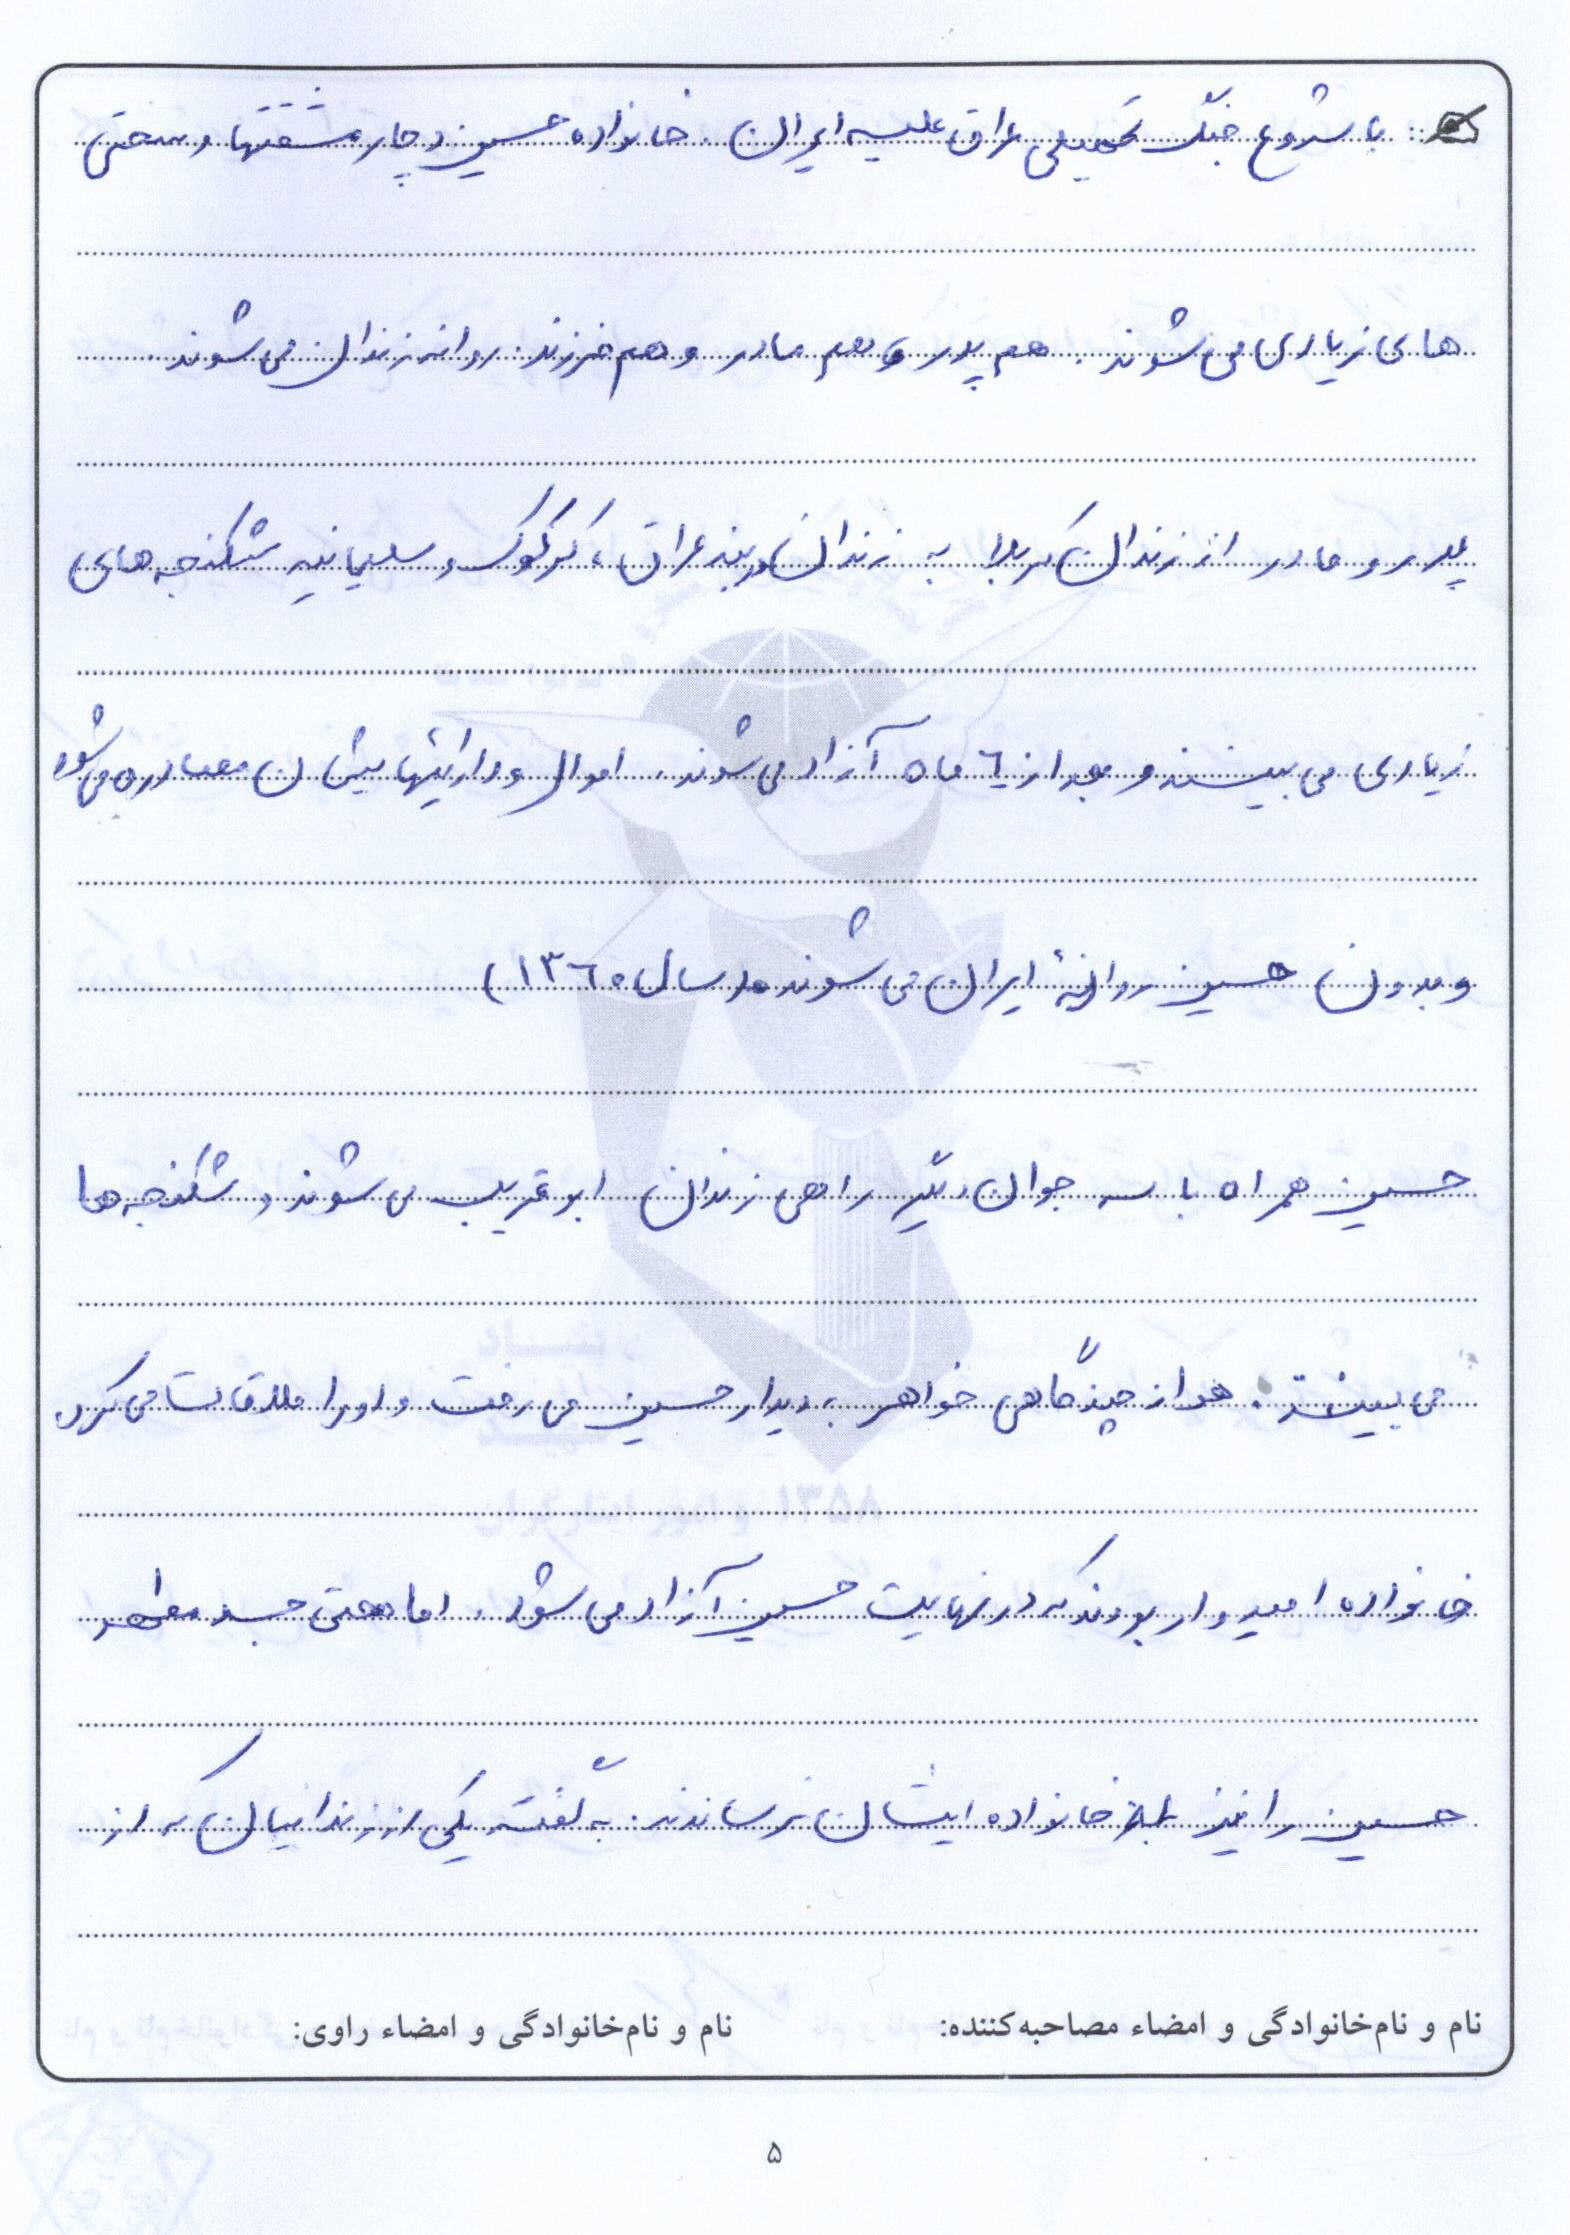 با شروع جنگ تحمیلی عراق علیه ایران . خانواده حسین دچار مشقتها و سختی
های زیادی می شوند . هم پدر و هم مادر و هم فرزند . روانه زندان می شوند .
پدر و مادر از زندان کربلا به زندان در بند عراق ، کرکوک و سلیمانیه شکنجه های
زیادی می بینند و بعد از ٦ ماه آزاد می شوند . اموال و دارائیهایشان مصادره می شود
و بدون حسین روانهٔ ایران می شوند در سال ١٣٦٠)
حسین همراه با سه جوان دیگر راهی زندان ابوغریب می شوند و شکنجه ها
می بینند . هر از چند گاهی خواهر به دیدار حسین می رفت و او را ملاقات می کرد .
خانواده امیدوار بودند که در نهایت حسین آزاد می شود . اما حتی جسد مطهر
حسین را نیز به خانواده ایشان نرساندند . به گفته یکی از زندانیان که از
نام و نام‌خانوادگی و امضاء مصاحبه‌کننده: نام و نام‌خانوادگی و امضاء راوی:
۵